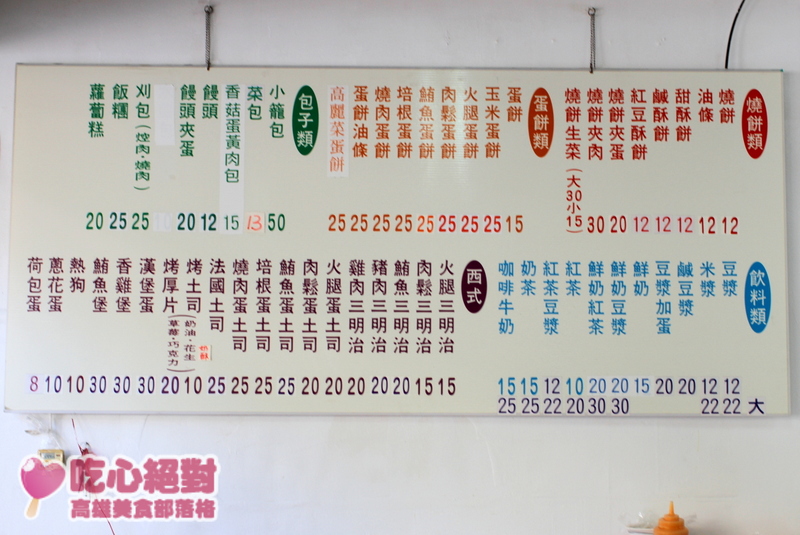 燒餅類
燒餅 12
油條 12
甜酥餅 12
鹹酥餅 12
紅豆酥餅 12
燒餅夾蛋 20
燒餅夾肉 30
燒餅生菜(大30小15)
蛋餅類
蛋餅 15
玉米蛋餅 25
火腿蛋餅 25
肉鬆蛋餅 25
鮪魚蛋餅 25
培根蛋餅 25
燒肉蛋餅 25
蛋餅油條 25
高麗菜蛋餅 25
包子類
小籠包 50
菜包 13
香菇蛋黃肉包 15
饅頭 12
饅頭夾蛋 20
刈包(焢肉·燒肉) 25
飯糰 25
蘿蔔糕 20
飲料類
大
豆漿 12 22
米漿 12 22
鹹豆漿 20
豆漿加蛋 20
鮮奶 15
鮮奶豆漿 20 30
鮮奶紅茶 20 30
紅茶 10 20
紅茶豆漿 12 22
奶茶 15 25
咖啡牛奶 15 25
西式
火腿三明治 15
肉鬆三明治 15
鮪魚三明治 20
豬肉三明治 20
雞肉三明治 20
火腿蛋土司 20
肉鬆蛋土司 20
鮪魚蛋土司 25
培根蛋土司 25
燒肉蛋土司 25
法國土司 25
烤土司 10
烤厚片 20
(奶油·花生 奶酥
草莓·巧克力)
漢堡蛋 30
香雞堡 30
鮪魚堡 30
熱狗 10
蔥花蛋 10
荷包蛋 8
吃心絕對
高雄美食部落格